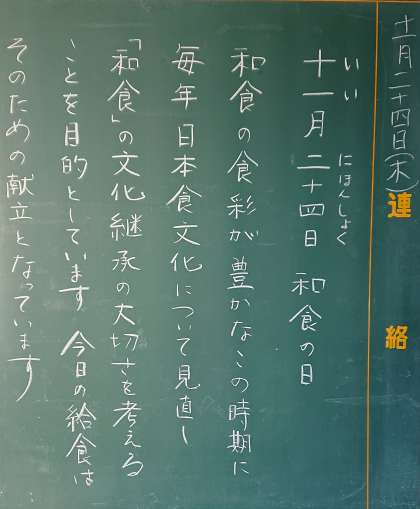 十一月二十四日(木)
連絡
いい にほんしょく
十一月二十四日 和食の日
和食の食彩が豊かなこの時期に
毎年日本食文化について見直し
「和食」の文化継承の大切さを考える
ことを目的としています 今日の給食は
そのための献立となっています